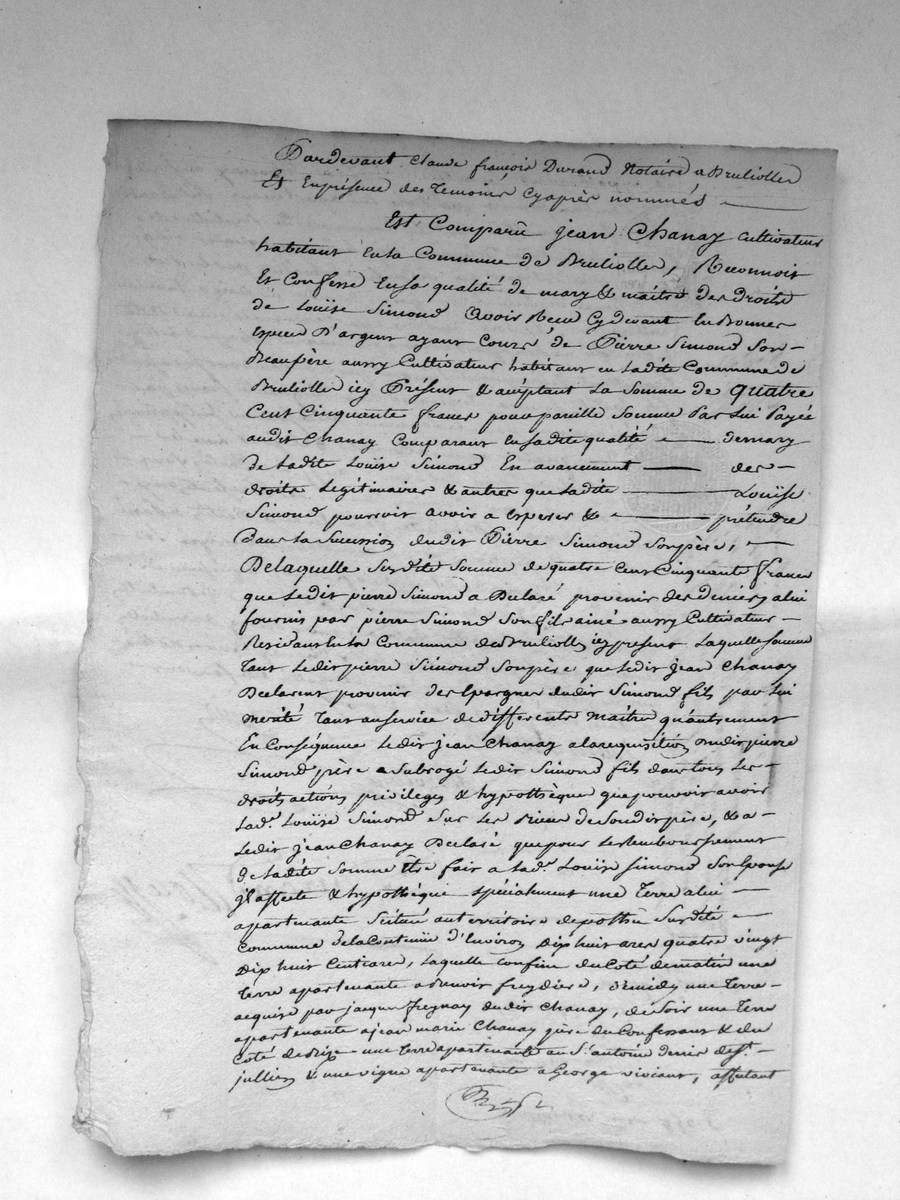 Pardevant Claude françois Durand Notaire a Brulioller
Et En présence des Temoins Cyaprès nommés
Est Comparû jean Chanay Cultivateur
habitant En la Commune de Brulioller, Reconnoit
Et Confesse En sa qualité de mary & maitre des droits
de Louïse Simond avoir Recu Cy devant En Bonnes
Especes D'argent ayant Cours de Pierre Simond Son
Beaupère aussy Cultivateur habitant en Ladite Commune de
Brulioller icy Présent & acéptant La Somme de quatre
Cent Cinquante francs pour pareille Somme Par Lui Payée
audit Chanay Comparant En sadite qualité de mary
de Ladite Louïse Simond En avancement des
droits Légitimaires & autres que Ladite Louïse
Simond pourroit avoir a Esperer & prétendre
Dans La Succession dudit Pierre Simond Son père,
De Laquelle Susdite Somme de quatre Cent Cinquante francs
que Ledit pierre Simond a Déclaré provenir des deniers a lui
fournis par pierre Simond Son fils ainé aussy Cultivateur
Residant En la Commune de Brulioller icy present Laquelle somme
Tant Ledit pierre Simond Son père que Ledit Jean Chanay
Déclarent provenir des Epargnes dudit Simond fils par Lui
merité Tant au service de differents Maitres qu'autrement
En Conséquence Ledit jean Chanay a la requisition dudit pierre
Simond père a Subrogé Ledit Simond fils dans tous Les
droits actions privileges & hypothèques que pouvoit avoir
Lade. Louïse Simond Sur Les Biens de Son dit père, & a
Ledit jean Chanay Déclaré que pour Le Remboursement
de Ladite Somme Etre fait a Lade. Louïse Simond Son Epouse
il affecte & hypothèque spécialement une Terre a lui
apartenante Scituée au territoire de pothu Susdite
Commune de la Contenüe d'Environ Dix huit ares quatre vingt
Dix huit Centiares, Laquelle Confine du Coté de matin une
Terre apartenante a freydiere, de midy une Terre
acquise par jacques fregnay dudit Chanay, de Soir une Terre
apartenante a jean marie Chanay père du Confessant & du
Coté de Bize une Terre apartenante au Sr. antoine denis de St.
jullien & une vigne apartenante a George viviant, affectant